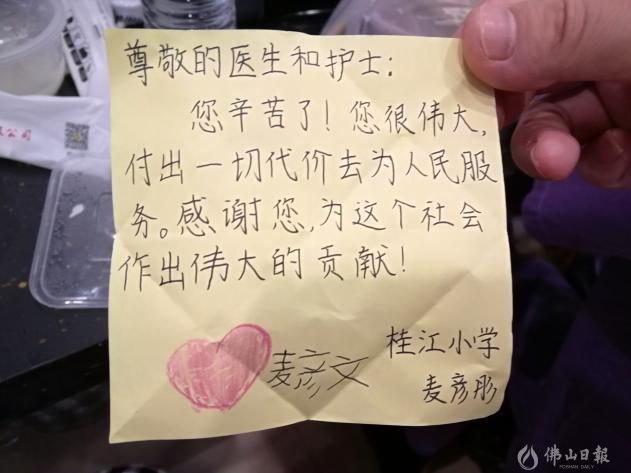 尊敬的医生和护士:
您辛苦了!您很伟大,
付出一切代价去为人民服
务。感谢您,为这个社会
作出伟大的贡献!
麦彦文
桂江小学
麦彦彤
公司
佛山日報
FOSHAN DAILY